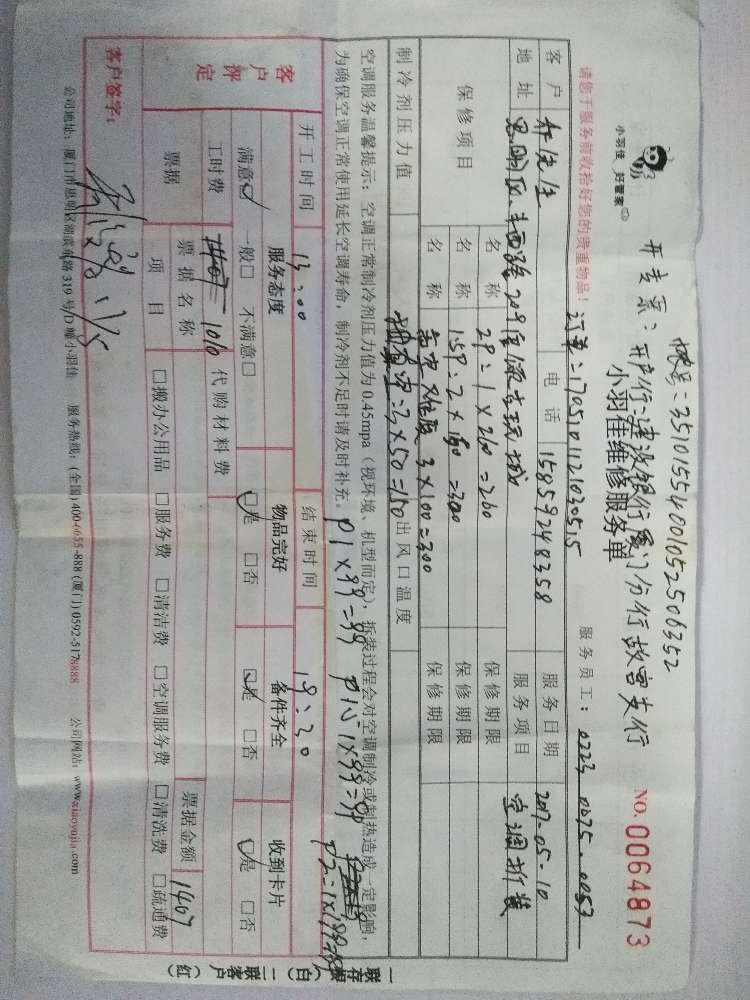 帐号：35101554001052506352
开支票：开户行：建设银行厦门分行故宫支行
小羽佳 好管家
小羽佳维修服务单
NO. 0064873
请您于服务前收拾好您的贵重物品！
订单：1705101121030515
服务员工：0223 0075.0053
客户 林先生 电话 15859248358 服务日期 2017-05-10
地址 思明区 服务项目 空调拆装
保修项目
名称 2P：1×260=260 保修期限
名称 1.5P：2×150=300 保修期限
名称 3×100=300 保修期限
制冷剂压力值 3×50=150 出风口温度
空调服务温馨提示：空调正常制冷剂压力值为0.45mpa（视环境、机型而定），拆装过程会对空调制冷或制热造成一定影响，
为确保空调正常使用延长空调寿命，制冷剂不足时请及时补充。
P1×99=99 P1.5：1×99=99
开工时间 13：00 结束时间 19：30
客户评定
服务态度 物品完好 备件齐全 收到卡片
满意☑ 一般□ 不满意□ ☑是 □否 ☑是 □否 ☑是 □否
工时费 1010 代购材料费
票据 票据名称 票据金额 1407
项目 □搬办公用品 □服务费 □清洁费 □空调服务费 □清洗费 □疏通费
客户签字：
公司地址：厦门市思明区湖滨南路319号D幢小羽佳 服务热线：（全国）400-6655-888（厦门）0592-5178888 公司网站：www.xiaoyujia.com
一联存根（白） 二联客户（红）